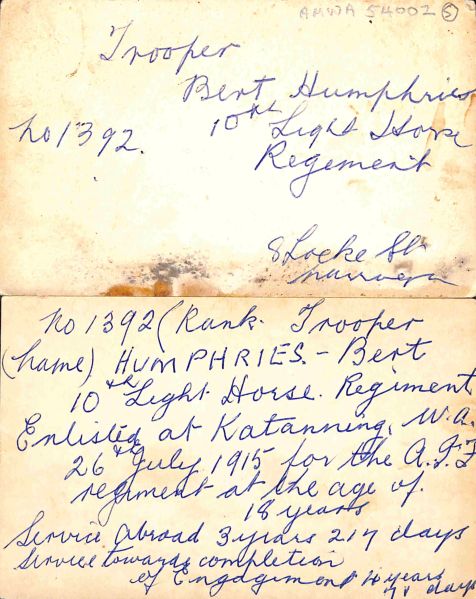 AMWA 54002 (5)
Trooper
Bert Humphries
No 1392. 10th Light Horse
Regement
8 Locke St
Narrogin
No 1392 (Rank. Trooper
(Name) HUMPHRIES. - Bert
10th Light Horse. Regiment
Enlisted at Katanning, W.A.
26th July 1915 for the A.I.F
regiment at the age of.
18 years
Service Abroad 3 years 217 days
Service towards completion
of Engagement 4 years
71 days